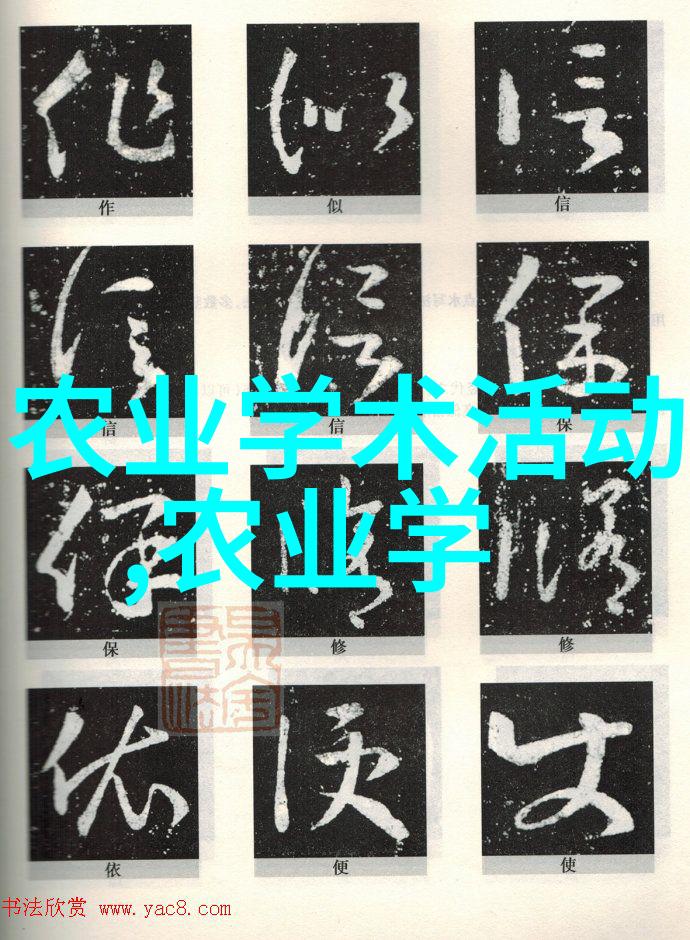 作 似 信
信 信 保
农业学术活动
,农业学
保 修 修
依 便 使
书法欣赏 www.yac8.com